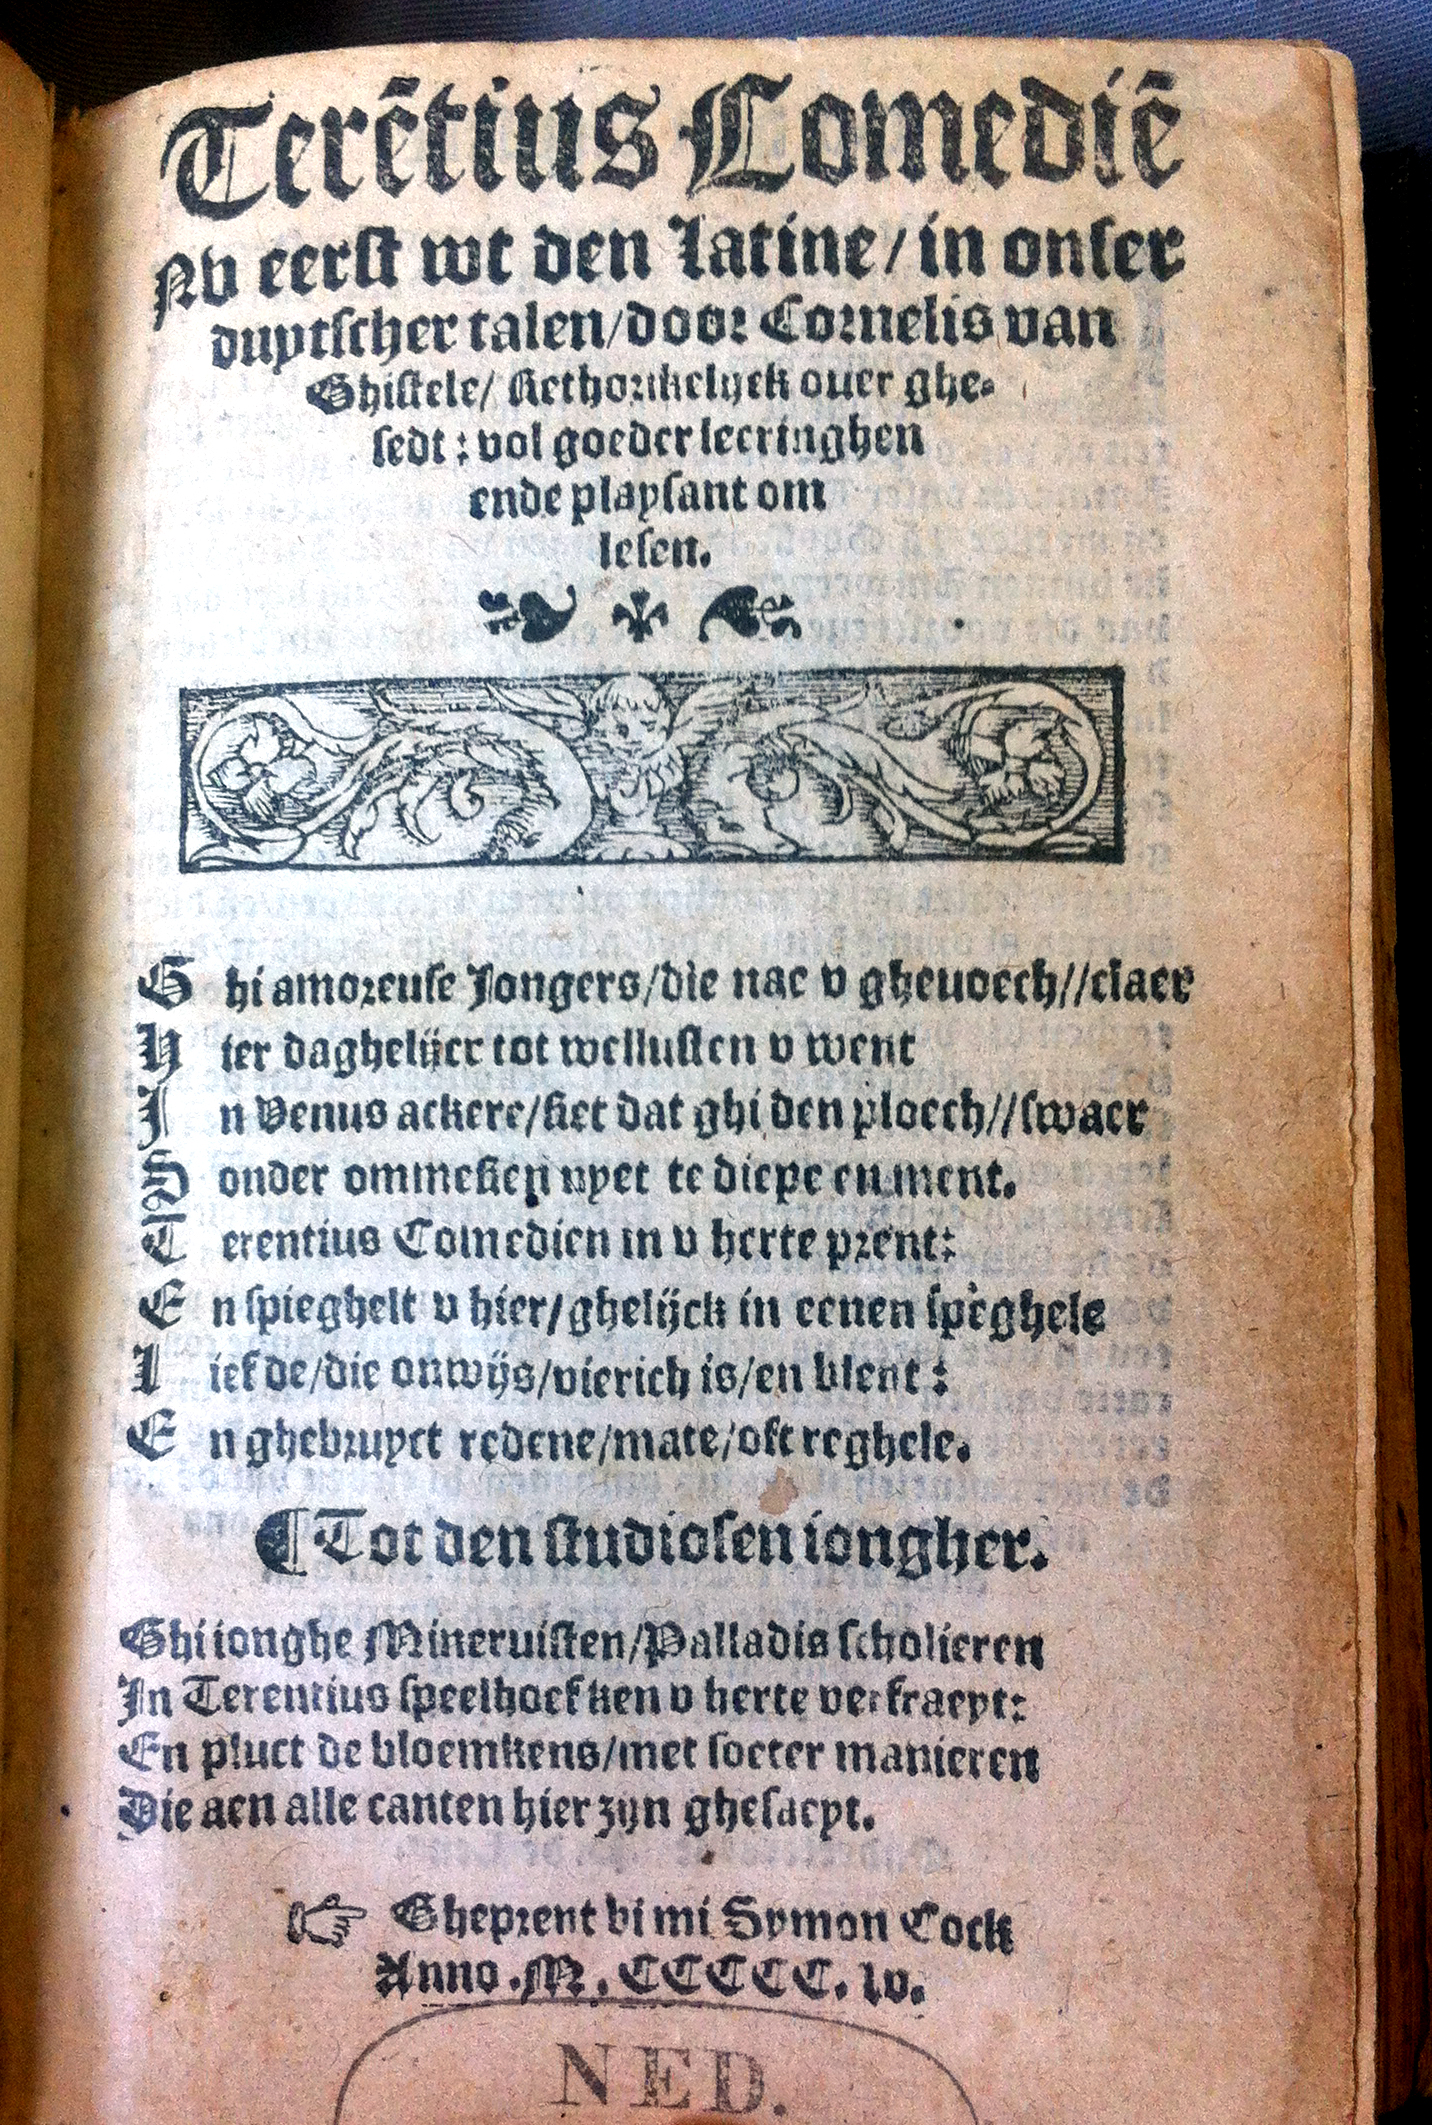 Terētius Comediē
Nv eerst wt den latine/in onser
duytscher talen/door Cornelis van
Ghistele/ Rethorikelyck ouer ghe-
sedt: vol goeder leeringhen
ende playsant om
lesen.
G hi amoreuse Jongers/die nae v gheuoech//claer
H ier daghelijcx tot wellusten v went
I n Venus ackere/siet dat ghi den ploech//swaer
S onder ommesien nyet te diepe en ment.
T erentius Comedien in v herte prent:
E n spieghelt v hier/ghelijck in eenen spieghele
L iefde/die onwijs/vierich is/en blent:
E n ghebruyct redene/mate/oft reghele.
¶ Tot den studiosen iongher.
Ghi ionghe Mineruisten/Palladis scholieren
In Terentius speelhoefken v herte verfraeyt:
En pluct de bloemkens/met soeter manieren
Die aen alle canten hier zijn ghesaeyt.
☞ Gheprent bi mi Symon Cock
Anno .M. CCCCC. lv.
NED.